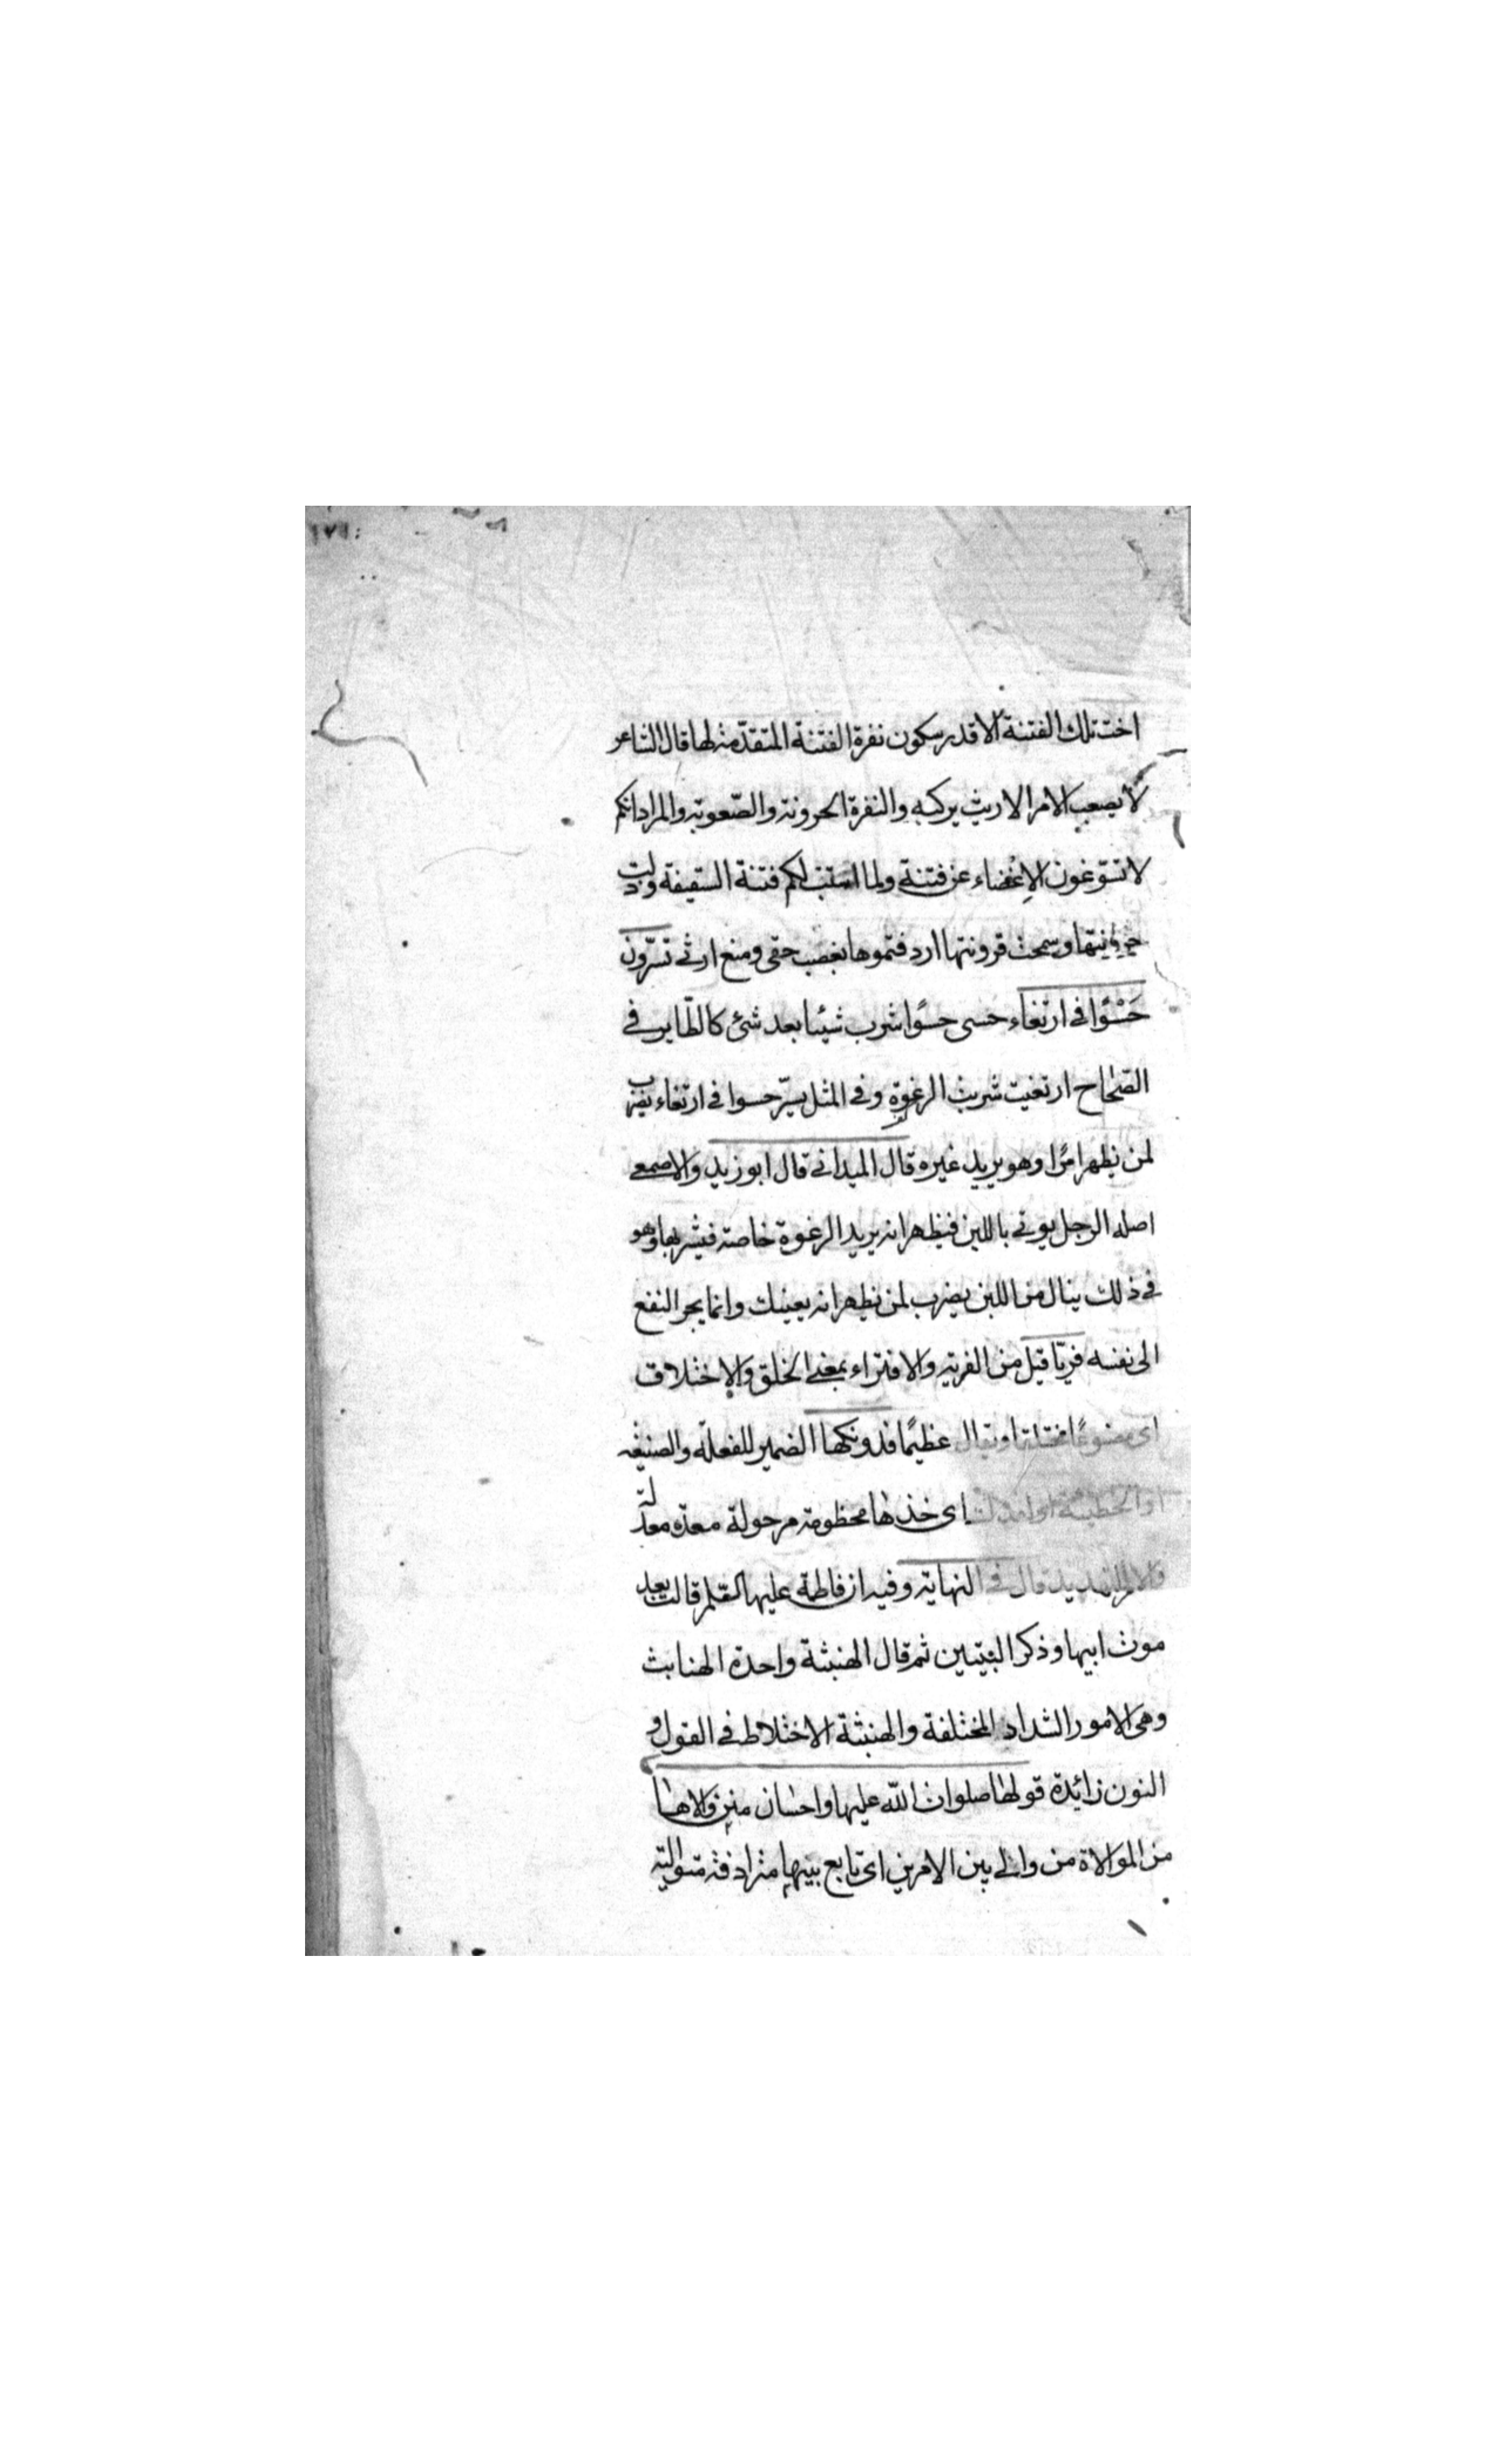 ١٧٦
اخت تلك الفتنة الا قدر سكون نفرة الفتنة المتقدمة لها قال الشاعر
لا يصعب الامر الا ريث يركبه والنفرة الحرونة والصّعوبة والمراد انكم
لا تسوّغون الاغضاء عن فتنة ولما استتب لكم فتنة السقيفة وذلت
وسمحت قرونتها اردفتموها بغصب حقى ومنع ارثى تسرّون
حَسْوًا فى ارتغاء حسى حسوًا شرب شيئا بعد شئ كالطّاير فى
الصّحاح ارتغيت شربت الرغوة وفى المثل يسرّ حسوا فى ارتغاء يضرب
لمن يظهر امرًا وهو يريد غيره قال الميدانى قال ابو زيد والاصمعى
اصله الرجل يوتى باللبن فيظهر انه يريد الرغوة خاصة فيشربها وهو
فى ذلك ينال من اللبن يضرب لمن يظهر انه يعينك وانما يجر النفع
الى نفسه فريّا قيل من الفرية والافتراء بمعنى الخلق والاختلاق
اى مصنوعًا مختلقا ويقال عظيمًا فدونكها الضمير للفعلة والصنيعة
او الخطيئة او لفدك اى خذها محظومة مرحولة معدّة معدلة
قال فى النهاية وفيه ان فاطمة عليها السّلم قالت بعد
موت ابيها وذكر البيتين ثم قال الهنبثة واحدة الهنابث
وهى الامور الشداد المختلفة والهنبثة الاختلاط فى القول و
النون زائدة قولها صلوات الله عليها واحسان منن والاها
من الموالاة من والى بين الامرين اى تابع بينهما مترادفة متوالية